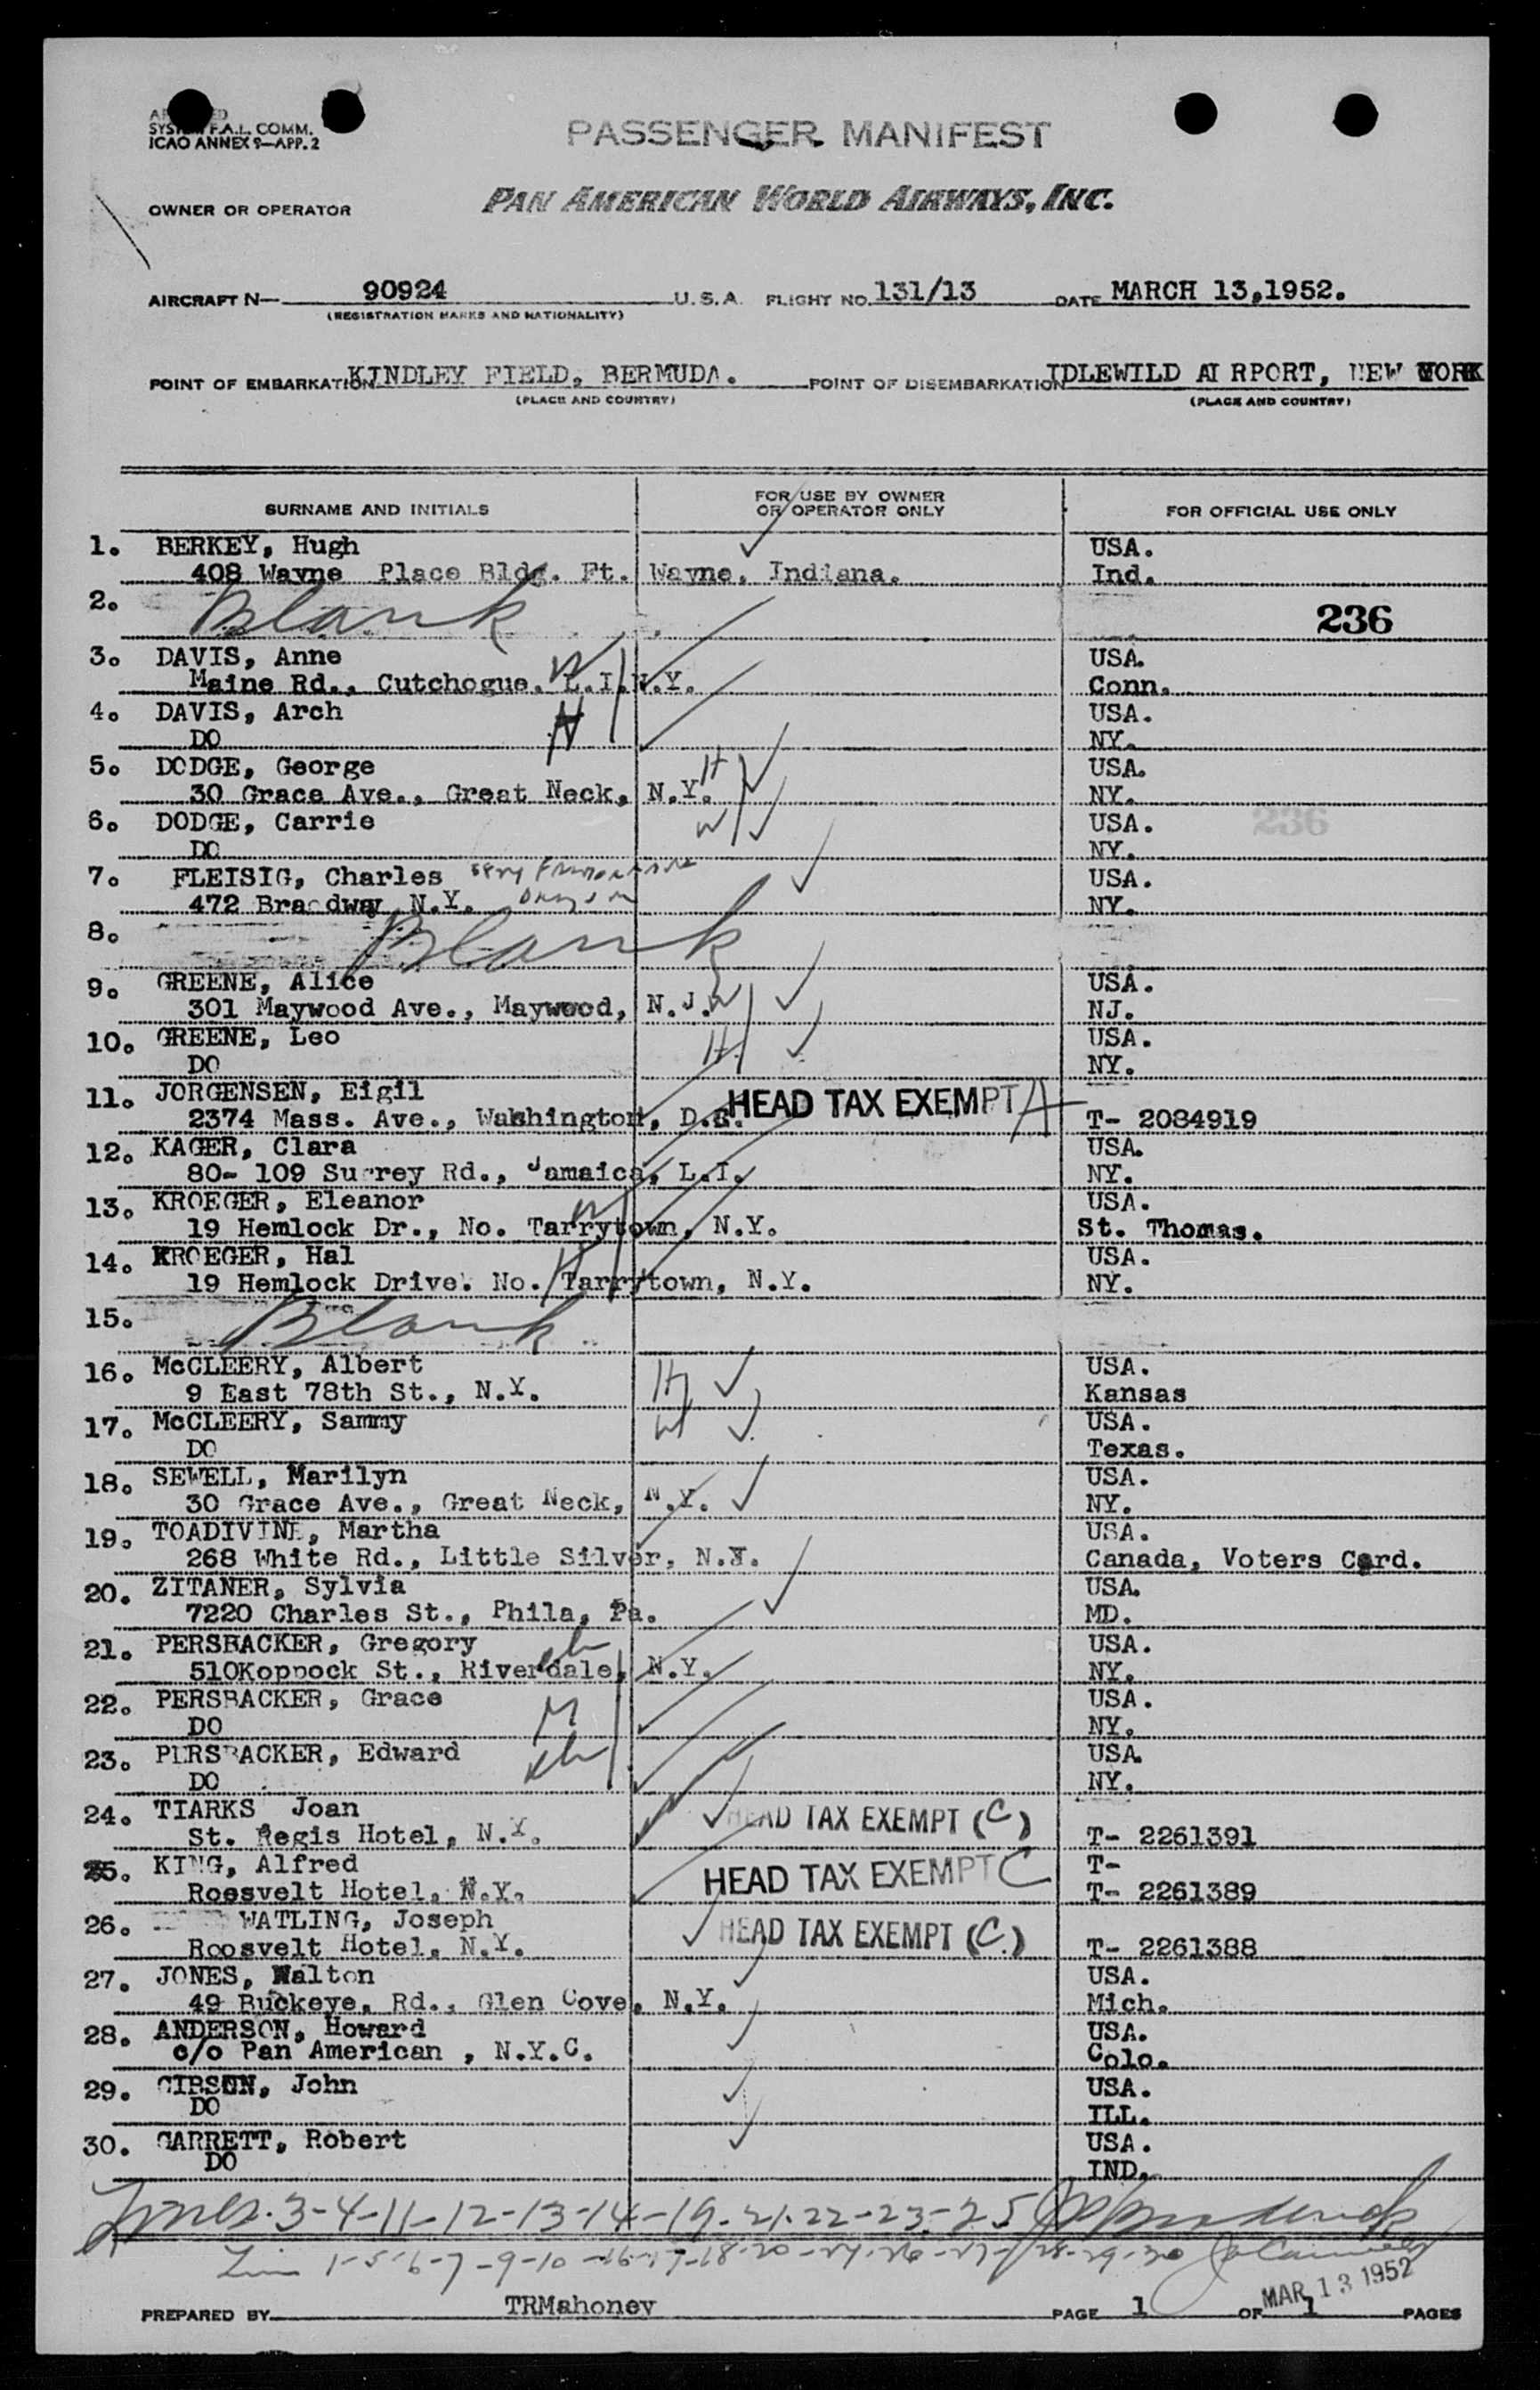 SYSTEM F.A.L. COMM.
ICAO ANNEX 9—APP. 2
PASSENGER MANIFEST
OWNER OR OPERATOR PAN AMERICAN WORLD AIRWAYS, INC.
AIRCRAFT N— 90924 U.S.A. FLIGHT NO. 131/13 DATE MARCH 13,1952.
(REGISTRATION MARKS AND NATIONALITY)
POINT OF EMBARKATION KINDLEY FIELD, BERMUDA. POINT OF DISEMBARKATION IDLEWILD AIRPORT, NEW YORK
(PLACE AND COUNTRY) (PLACE AND COUNTRY)
SURNAME AND INITIALS FOR USE BY OWNER OR OPERATOR ONLY FOR OFFICIAL USE ONLY
1. BERKEY, Hugh USA.
408 Wayne Place Bldg. Ft. Wayne, Indiana. Ind.
2. Blank 236
3. DAVIS, Anne W USA.
Maine Rd., Cutchogue, L.I. N.Y. Conn.
4. DAVIS, Arch H USA.
DO NY.
5. DODGE, George H USA.
30 Grace Ave., Great Neck, N.Y. NY.
6. DODGE, Carrie W USA. 236
DO NY.
7. FLEISIG, Charles USA.
472 Broadway N.Y. NY.
8. Blank
9. GREENE, Alice USA.
301 Maywood Ave., Maywood, N.J. W NJ.
10. GREENE, Leo H USA.
DO NY.
11. JORGENSEN, Eigil HEAD TAX EXEMPT A
2374 Mass. Ave., Washington, D.C. T- 2084919
12. KAGER, Clara USA.
80- 109 Surrey Rd., Jamaica, L.I. NY.
13. KROEGER, Eleanor W USA.
19 Hemlock Dr., No. Tarrytown, N.Y. St. Thomas.
14. KROEGER, Hal H USA.
19 Hemlock Drive. No. Tarrytown, N.Y. NY.
15. Blank
16. McCLEERY, Albert H USA.
9 East 78th St., N.Y. Kansas
17. McCLEERY, Sammy W USA.
DO Texas.
18. SEWELL, Marilyn USA.
30 Grace Ave., Great Neck, N.Y. NY.
19. TOADIVINE, Martha USA.
268 White Rd., Little Silver, N.J. Canada, Voters Card.
20. ZITANER, Sylvia USA.
7220 Charles St., Phila, Pa. MD.
21. PERSBACKER, Gregory ch USA.
510Koppock St., Riverdale, N.Y. NY.
22. PERSBACKER, Grace M USA.
DO NY.
23. PERSBACKER, Edward ch USA.
DO NY.
24. TIARKS Joan HEAD TAX EXEMPT (C)
St. Regis Hotel, N.Y. T- 2261391
25. KING, Alfred HEAD TAX EXEMPT C T-
Roosvelt Hotel, N.Y. T- 2261389
26. WATLING, Joseph HEAD TAX EXEMPT (C.)
Roosvelt Hotel, N.Y. T- 2261388
27. JONES, Walton USA.
49 Buckeye, Rd., Glen Cove, N.Y. Mich.
28. ANDERSON, Howard USA.
c/o Pan American , N.Y.C. Colo.
29. GIBSON, John USA.
DO ILL.
30. GARRETT, Robert USA.
DO IND.
Lines. 3-4-11-12-13-14-19-21-22-23-25
Lin 1-5-6-7-9-10-16-17-18-20-24-26-27-28-29-30
MAR 13 1952
PREPARED BY TRMahoney PAGE 1 OF 1 PAGES